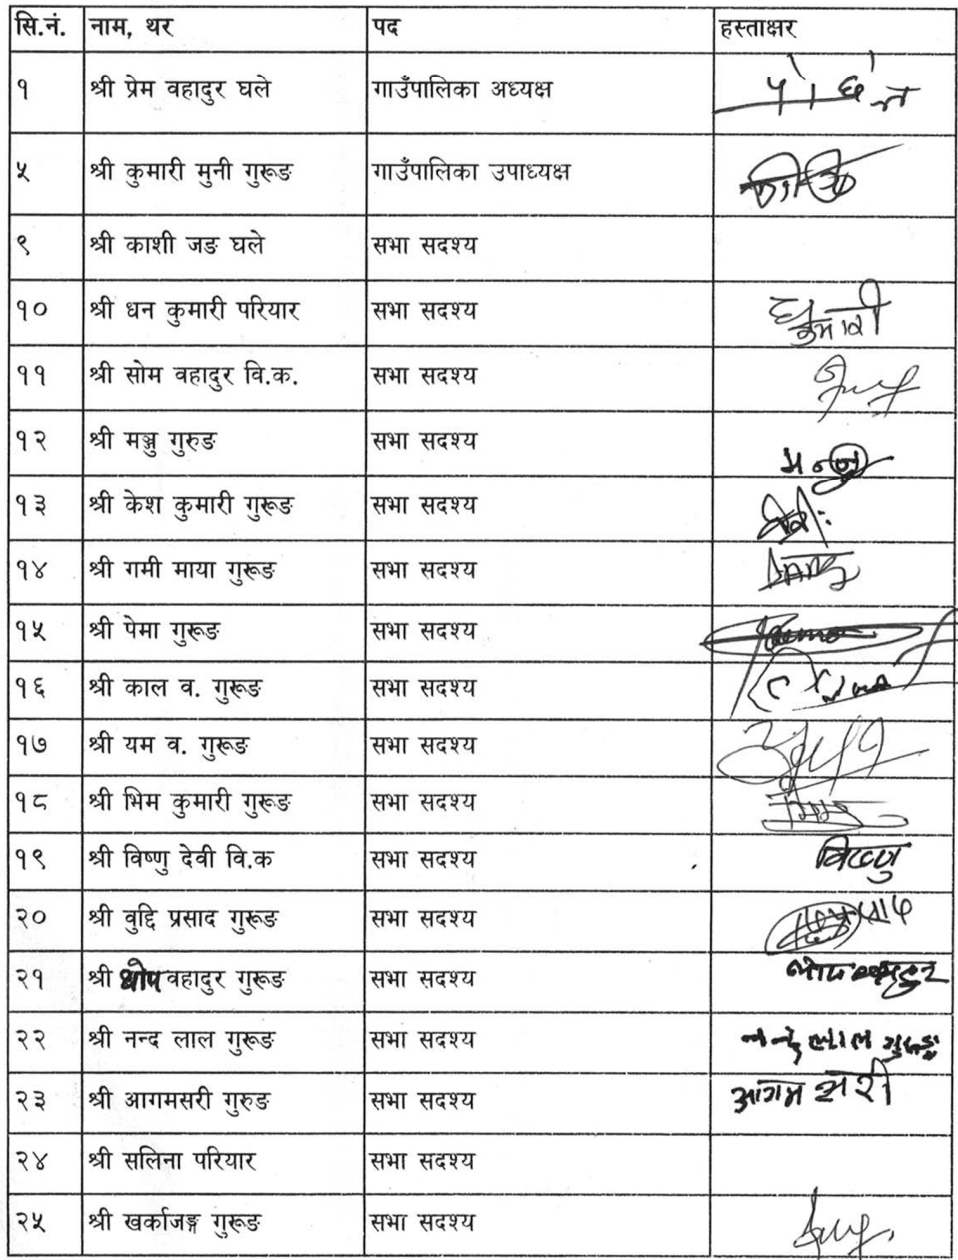 सि.नं. नाम, थर पद हस्ताक्षर
१ श्री प्रेम वहादुर घले गाउँपालिका अध्यक्ष
५ श्री कुमारी मुनी गुरूङ गाउँपालिका उपाध्यक्ष
९ श्री काशी जङ घले सभा सदश्य
१० श्री धन कुमारी परियार सभा सदश्य ध कुमारी
११ श्री सोम वहादुर वि.क. सभा सदश्य
१२ श्री मञ्जु गुरुङ सभा सदश्य मन्जु
१३ श्री केश कुमारी गुरूङ सभा सदश्य
१४ श्री गमी माया गुरूङ सभा सदश्य
१५ श्री पेमा गुरूङ सभा सदश्य
१६ श्री काल व. गुरूङ सभा सदश्य
१७ श्री यम व. गुरूङ सभा सदश्य
१८ श्री भिम कुमारी गुरूङ सभा सदश्य
१९ श्री विष्णु देवी वि.क सभा सदश्य विष्णु
२० श्री वुद्दि प्रसाद गुरूङ सभा सदश्य
२१ श्री थोप वहादुर गुरूङ सभा सदश्य
२२ श्री नन्द लाल गुरूङ सभा सदश्य नन्द लाल गुरूङ
२३ श्री आगमसरी गुरुङ सभा सदश्य आगम सरी
२४ श्री सलिना परियार सभा सदश्य
२५ श्री खर्काजङ्ग गुरूङ सभा सदश्य